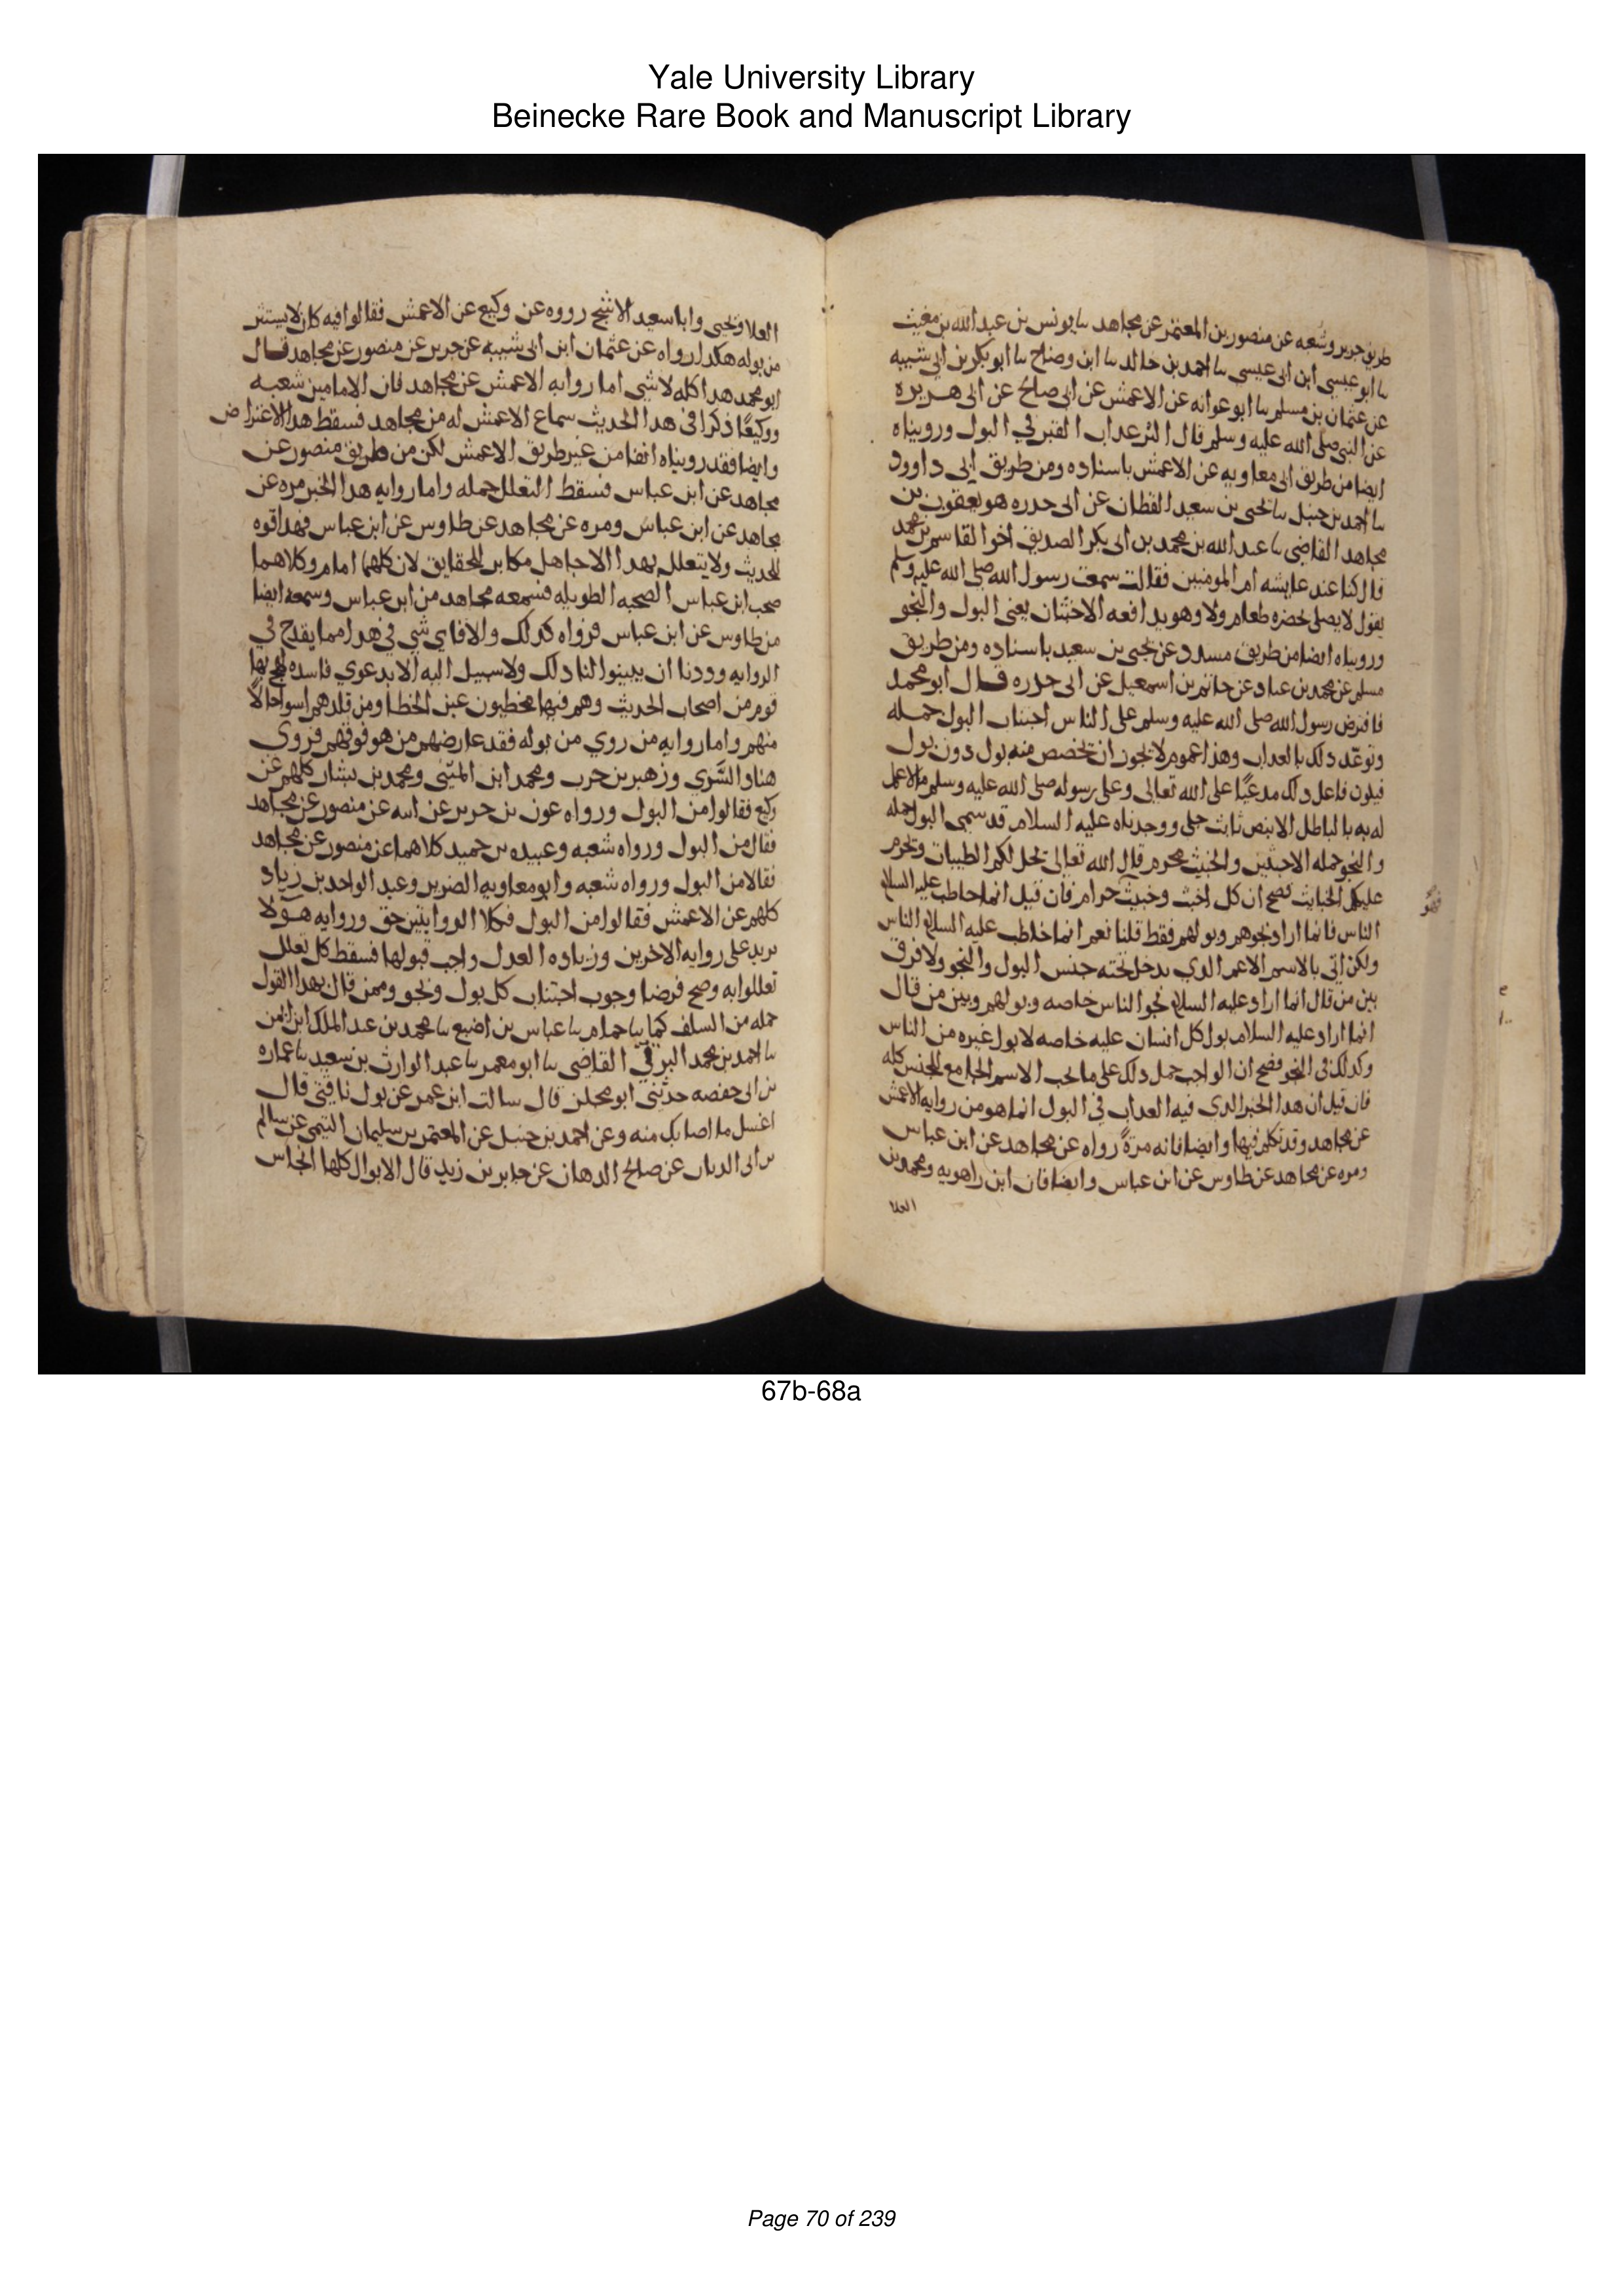 Yale University Library
Beinecke Rare Book and Manuscript Library
طريق جرير وشعبه عن منصور بن المعتمر عن مجاهد سا يونس بن عبد الله بن مغيث
سا ابو عيسى ابن ابى عيسى سا احمد بن خالد سا ابن وضاح سا ابو بكر بن ابى شيبه
عن عثمان بن مسلم سا ابو عوانه عن الاعمش عن ابى صالح عن ابى هريره
عن النبى صلى الله عليه وسلم قال اكثر عذاب القبر في البول ورويناه
ايضا من طريق ابى معاويه عن الاعمش باسناده ومن طريق ابى داوود
سا احمد بن حنبل سا يحيى بن سعيد القطان عن ابى حدره هو يعقوب بن
مجاهد القاضى سا عبد الله بن محمد بن ابى بكر الصديق اخوا القاسم بن محمد
قال كنا عند عايشه ام المومنين فقالت سمعت رسول الله صلى الله عليه وسلم
يقول لا يصلى بحضره طعام ولا وهو يدافعه الاخبثان يعنى البول والنجو
ورويناه ايضا من طريق مسدد عن يحيى بن سعيد باسناده ومن طريق
مسلم عن محمد بن عباد عن حاتم بن اسمعيل عن ابى حدره قال ابو محمد
فافترض رسول الله صلى الله عليه وسلم على الناس اجتناب البول جمله
وتوعد دلك بالعداب وهذا عموم لا يجوز ان تخصص منه بول دون بول
فيكون فاعل دلك مدعيًا على الله تعالى وعلى رسوله صلى الله عليه وسلم ما لا علم
له به بالباطل الا بنص ثابت جلى ووجدناه عليه السلام قد سمى البول جمله
والنجو جمله الاخبثين والخبيث محرم قال الله تعالى يحل لكم الطيبات ويحرم
عليكم الخبايث فصح ان كل اخبث وخبيث حرام فان قيل انما خاطب عليه السلام
الناس فانما اراد نجوهم وبولهم فقط قلنا نعم انما خاطب عليه السلام الناس
ولكن اتى بالاسم الاعم الدي يدخل تحته جنس البول والنجو ولا فرق
بين من قال انما اراد عليه السلام نجو الناس خاصه وبولهم وبين من قال
انما اراد عليه السلام بول كل انسان عليه خاصه لا بول غيره من الناس
وكدلك فى النجو فصح ان الواجب حمل دلك على ما تحت الاسم الجامع للجنس كله
فان قيل ان هدا الخبر الدى فيه العداب في البول انما هو من روايه الاعمش
عن مجاهد وقد تكلم فيها وايضا فانه مرةً رواه عن مجاهد عن ابن عباس
ومره عن مجاهد عن طاوس عن ابن عباس وايضا فان ابن راهويه ومحمد بن
العلا
العلا ويحيى وابا سعيد الاشج رووه عن وكيع عن الاعمش فقالوا فيه كان لا يستتر
من بوله هكدا رواه عن عثمان ابن ابى شيبه عن جرير عن منصور عن مجاهد قال
ابو محمد هدا كله لا شى اما روايه الاعمش عن مجاهد فان الامامين شعبه
ووكيعًا ذكرا فى هدا الحديث سماع الاعمش له من مجاهد فسقط هدا الاعتراض
وايضا فقد رويناه انفا من غير طريق الاعمش لكن من طريق منصور عن
مجاهد عن ابن عباس فسقط التعلل جمله واما روايه هدا الخبر مره عن
مجاهد عن ابن عباس ومره عن مجاهد عن طاوس عن ابن عباس فهدا قوه
للحديث ولا يتعلل بهدا الا جاهل مكابر للحقايق لان كلهما امام وكلاهما
صحب ابن عباس الصحبه الطويله فسمعه مجاهد من ابن عباس وسمعه ايضا
من طاوس عن ابن عباس فرواه كدلك والا فاى شى فى هدا مما يقدح في
الروايه ووددنا ان يبينوا لنا دلك ولا سبيل اليه الا بدعوى فاسده لهج بها
قوم من اصحاب الحديث وهم فيها مخطيون عين الخطا ومن قلدهم اسوا حالا
منهم واما روايه من روي من بوله فقد عارضهم من هو فوقهم فروى
هناد السَّرِي وزهير بن حرب ومحمد ابن المثنى ومحمد بن بشار كلهم عن
وكيع فقالوا من البول ورواه عون بن جرير عن ابيه عن منصور عن مجاهد
فقال من البول ورواه شعبه وعبيده بن حميد كلاهما عن منصور عن مجاهد
فقالا من البول ورواه شعبه وابو معاويه الضرير وعبد الواحد بن زياد
كلهم عن الاعمش فقالوا من البول فكلا الروايتين حق وروايه هولا
تزيد على روايه الاخرين وزياده العدل واجب قبولها فسقط كل تعلل
تعللوا به وصح فرضا وجوب اجتناب كل بول ونجو وممن قال بهدا القول
جمله من السلف كما سا حمام سا عباس بن اصبع سا محمد بن عبد الملك ابن ايمن
سا احمد بن محمد البرتي القاضى سا ابو معمر سا عبد الوارث بن سعيد سا عماره
بن ابى حفصه حدثنى ابو مجلز قال سالت ابن عمر عن بول ناقتى قال
اغسل ما اصابك منه وعن احمد بن حنبل عن المعتمر بن سليمان التيمى عن سالم
بن ابى الديال عن صالح الدهان عن جابر بن زيد قال الابوال كلها انجاس
67b-68a
Page 70 of 239